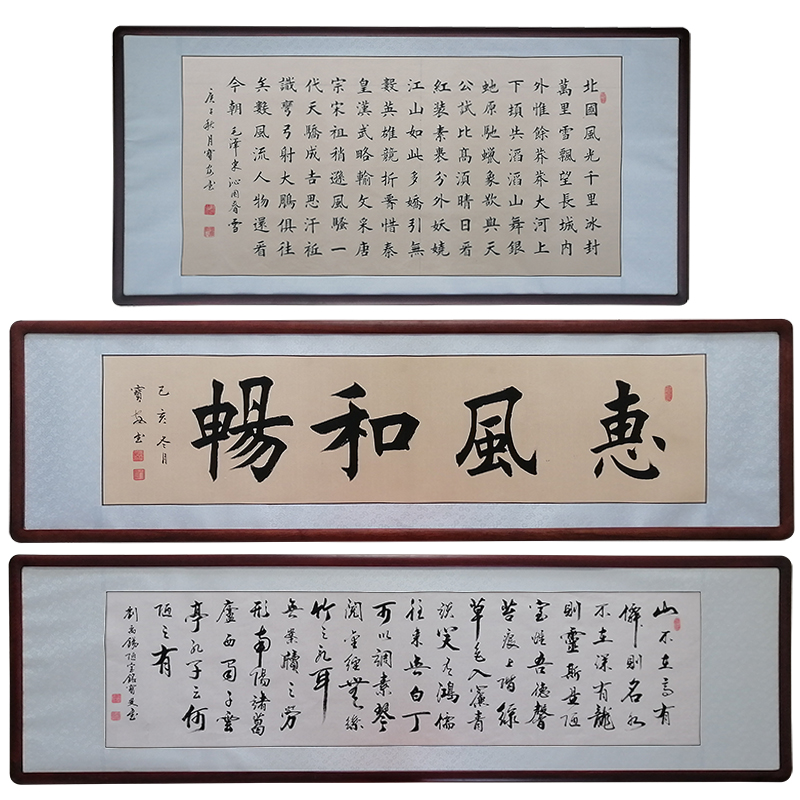 北國風光千里冰封
萬里雪飄望長城內
外惟餘莽莽大河上
下頓失滔滔山舞銀
蛇原馳蠟象欲與天
公試比高須晴日看
紅裝素裹分外妖嬈
江山如此多嬌引無
數英雄競折腰惜秦
皇漢武略輸文采唐
宗宋祖稍遜風騷一
代天驕成吉思汗祗
識彎弓射大鵰俱往
矣數風流人物還看
今朝 毛澤東沁園春雪
庚子秋月寶安書
惠風和暢
己亥冬月
寶安書
山不在高有
僊則名水
不在深有龍
則靈斯是陋
室惟吾德馨
苔痕上階綠
草色入簾青
談笑有鴻儒
往來無白丁
可以調素琴
閱金經無絲
竹之亂耳
無案牘之勞
形南陽諸葛
廬西蜀子雲
亭孔子云何
陋之有
劉禹錫陋室銘寶安書